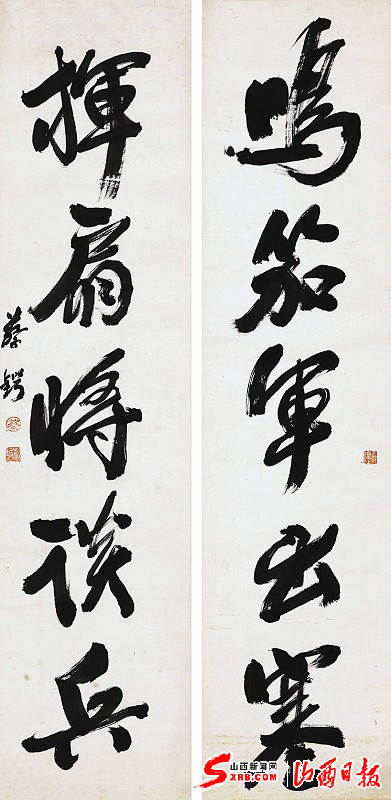 鳴笳軍出塞
揮扇將談兵
蔡鍔
山西新闻网
SXRB.COM
山西日报